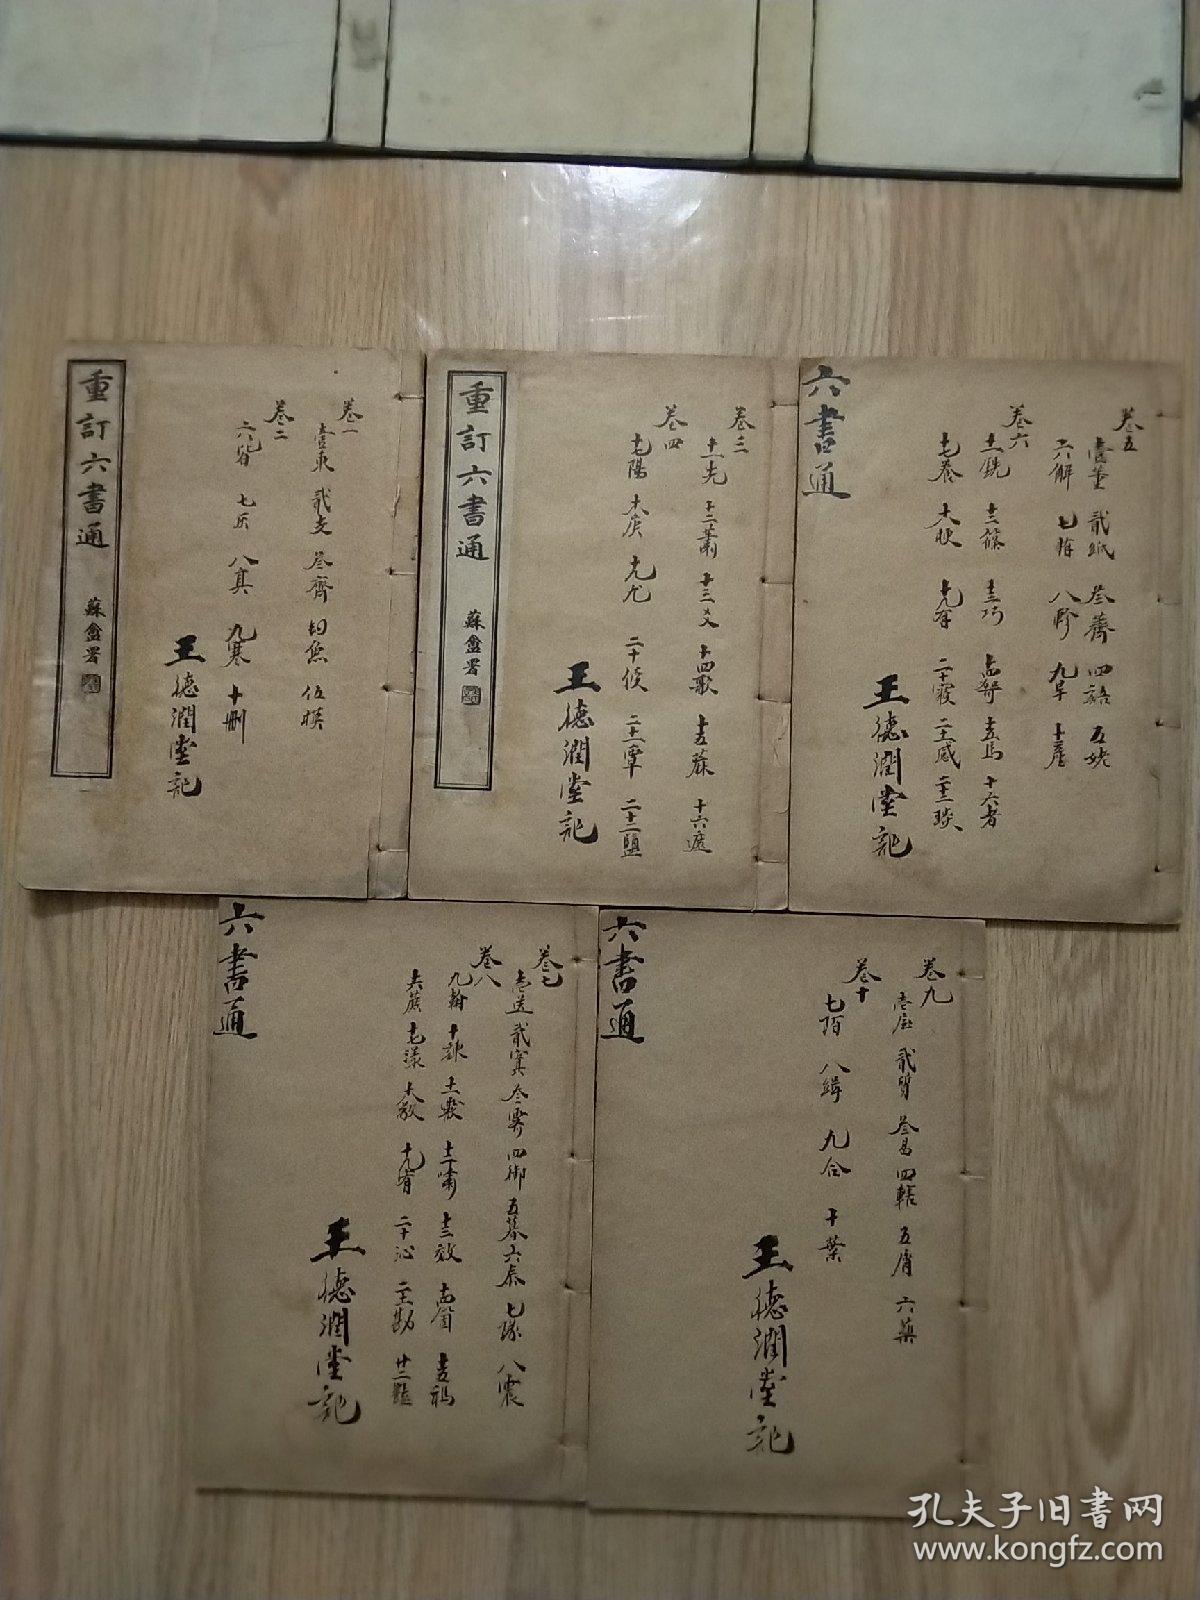 重訂六書通
蘇盦署
卷一
壹東 貳支 叁齊 四魚 伍模
卷二
六皆 七灰 八真 九寒 十刪
王德潤堂記
重訂六書通
蘇盦署
卷三
十一先 十二蕭 十三爻 十四歌 十五麻 十六遮
卷四
十七陽 十八庚 十九尤 二十侵 二十一覃 二十二鹽
王德潤堂記
六書通
卷五
壹董 貳紙 叁薺 四語 五姥
六解 七賄 八軫 九旱 十產
卷六
十一銑 十二篠 十三巧 十四哿 十五馬 十六者
十七養 十八梗 十九有 二十寑 二十一感 二十二琰
王德潤堂記
六書通
卷七
壹送 貳寘 叁霽 四御 五暮 六泰 七隊 八震
卷八
九翰 十諫 十一霰 十二嘯 十三效 十四箇 十五禡
十六蔗 十七漾 十八敬 十九宥 二十沁 二十一勘 廿二豔
王德潤堂記
六書通
卷九
壹屋 貳質 叁曷 四轄 五屑 六藥
卷十
七陌 八緝 九合 十葉
王德潤堂記
孔夫子旧书网
www.kongfz.com